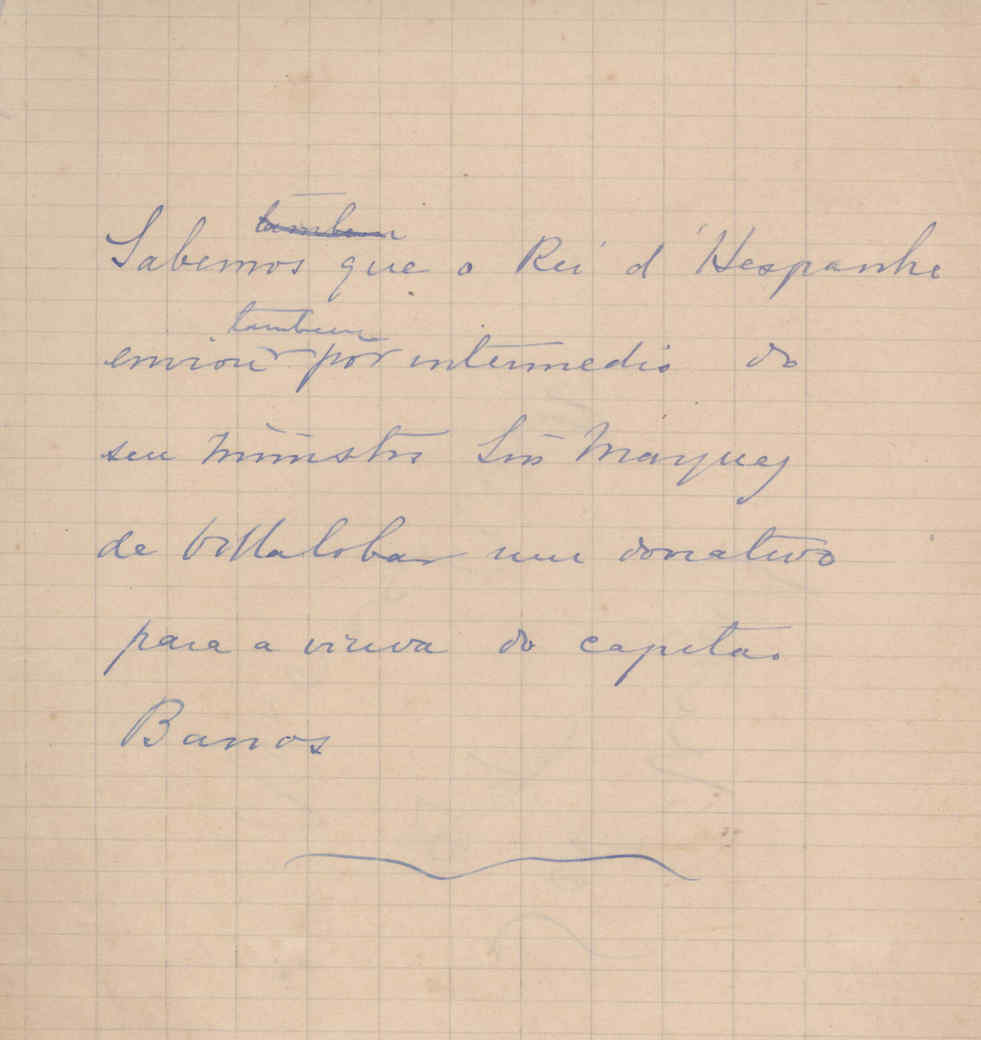 tambem
Sabemos que o Rei d'Hespanha
tambem
enviou por intermedio do
seu ministro Snr Marquez
de Villalobar um donativo
para a viuva do capitão
Barros